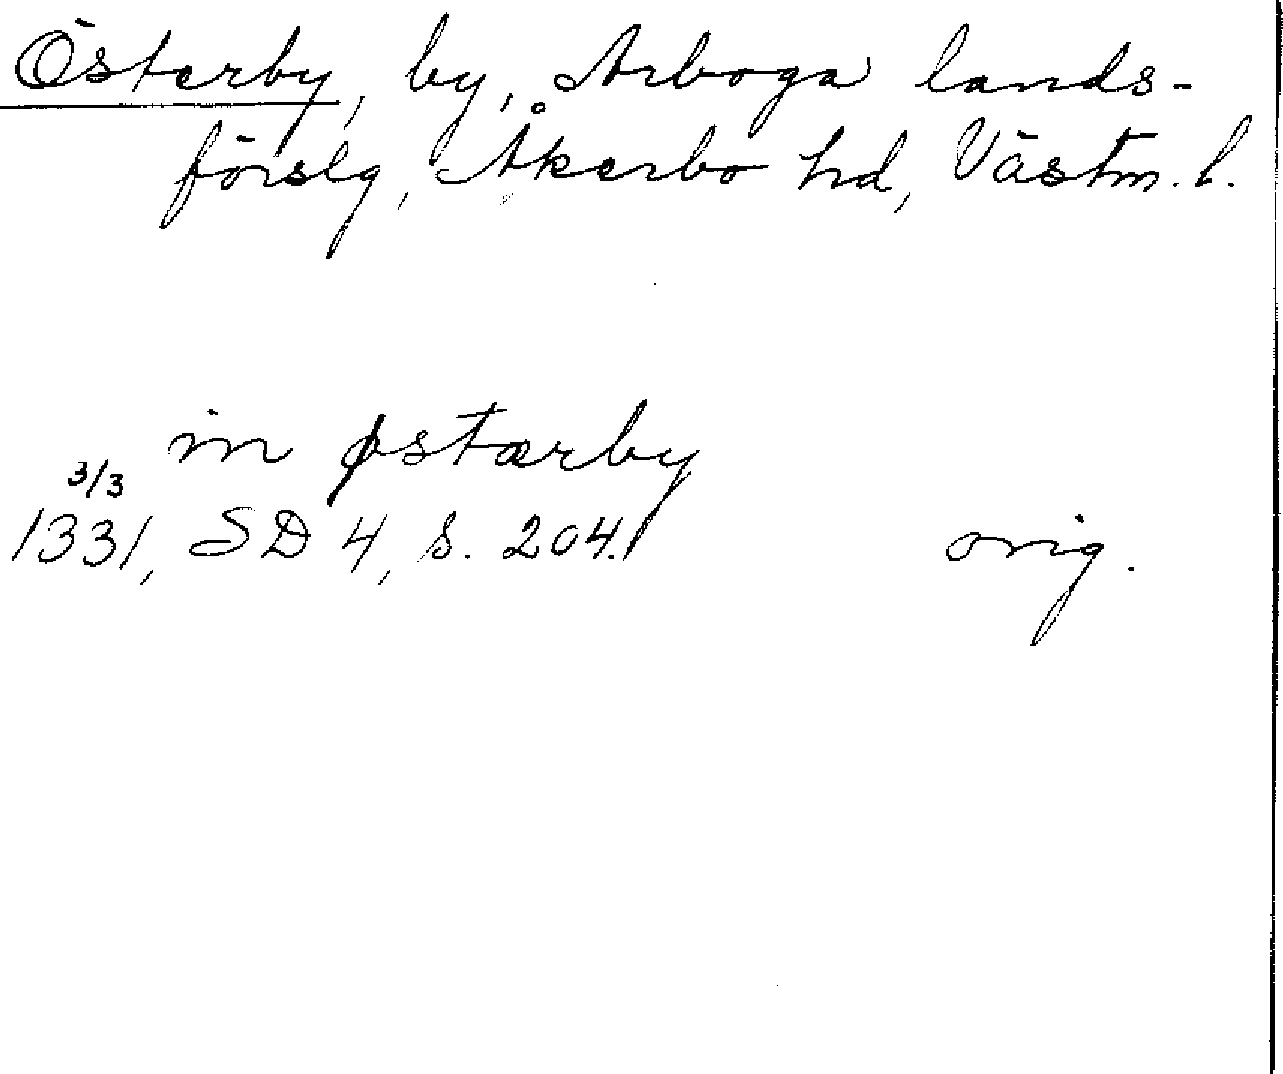 Österby, by, Arboga lands-
förslg, Åkerbo hd, Västm. l.
in østærby
3/3
1331, SD 4, s. 204. orig.